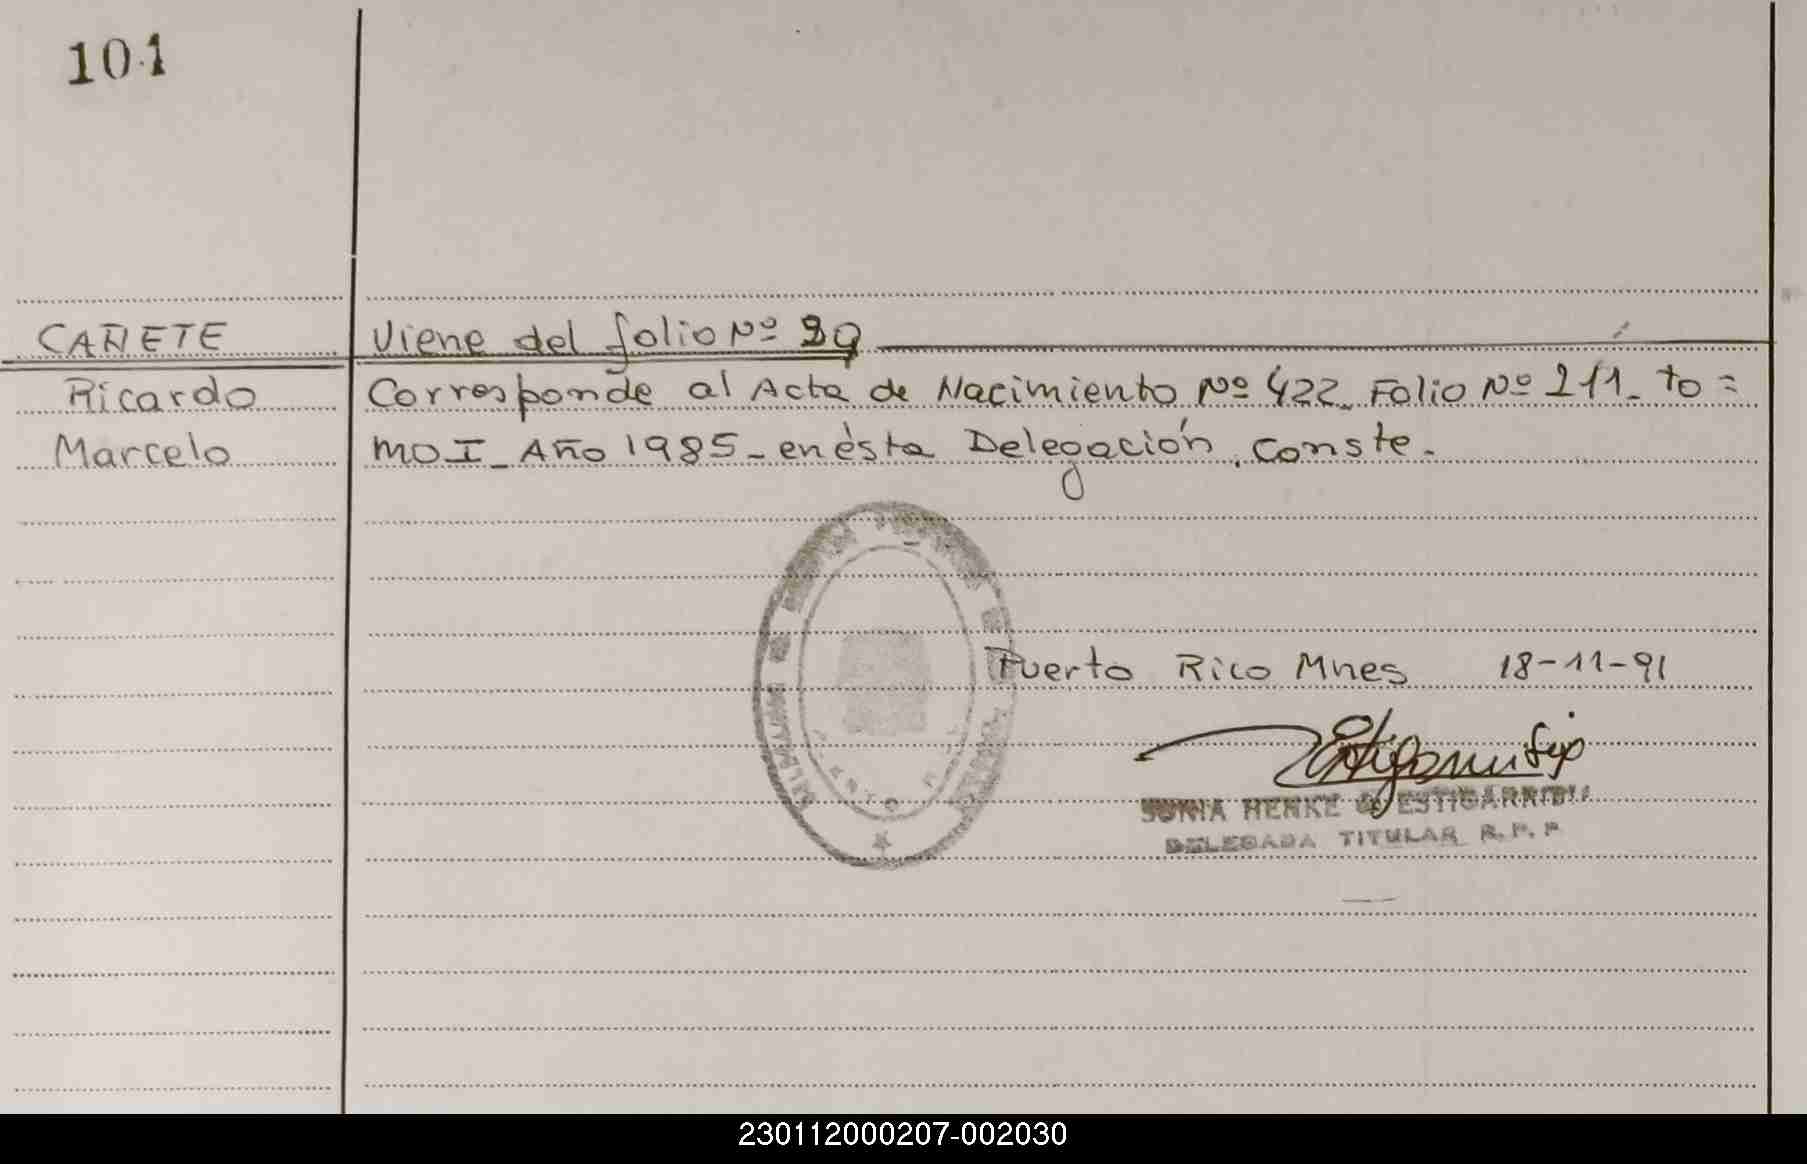 101
CAÑETE
Ricardo
Marcelo
Viene del folio Nº
Corresponde al Acta de Nacimiento Nº 422_ Folio Nº 211_ to=
mo I_ Año 1985_ en ésta Delegación. Conste.
Puerto Rico Mnes 18-11-91
SONIA HENKE ESTIGARRIBIA
DELEGADA TITULAR R. P. P
230112000207-002030